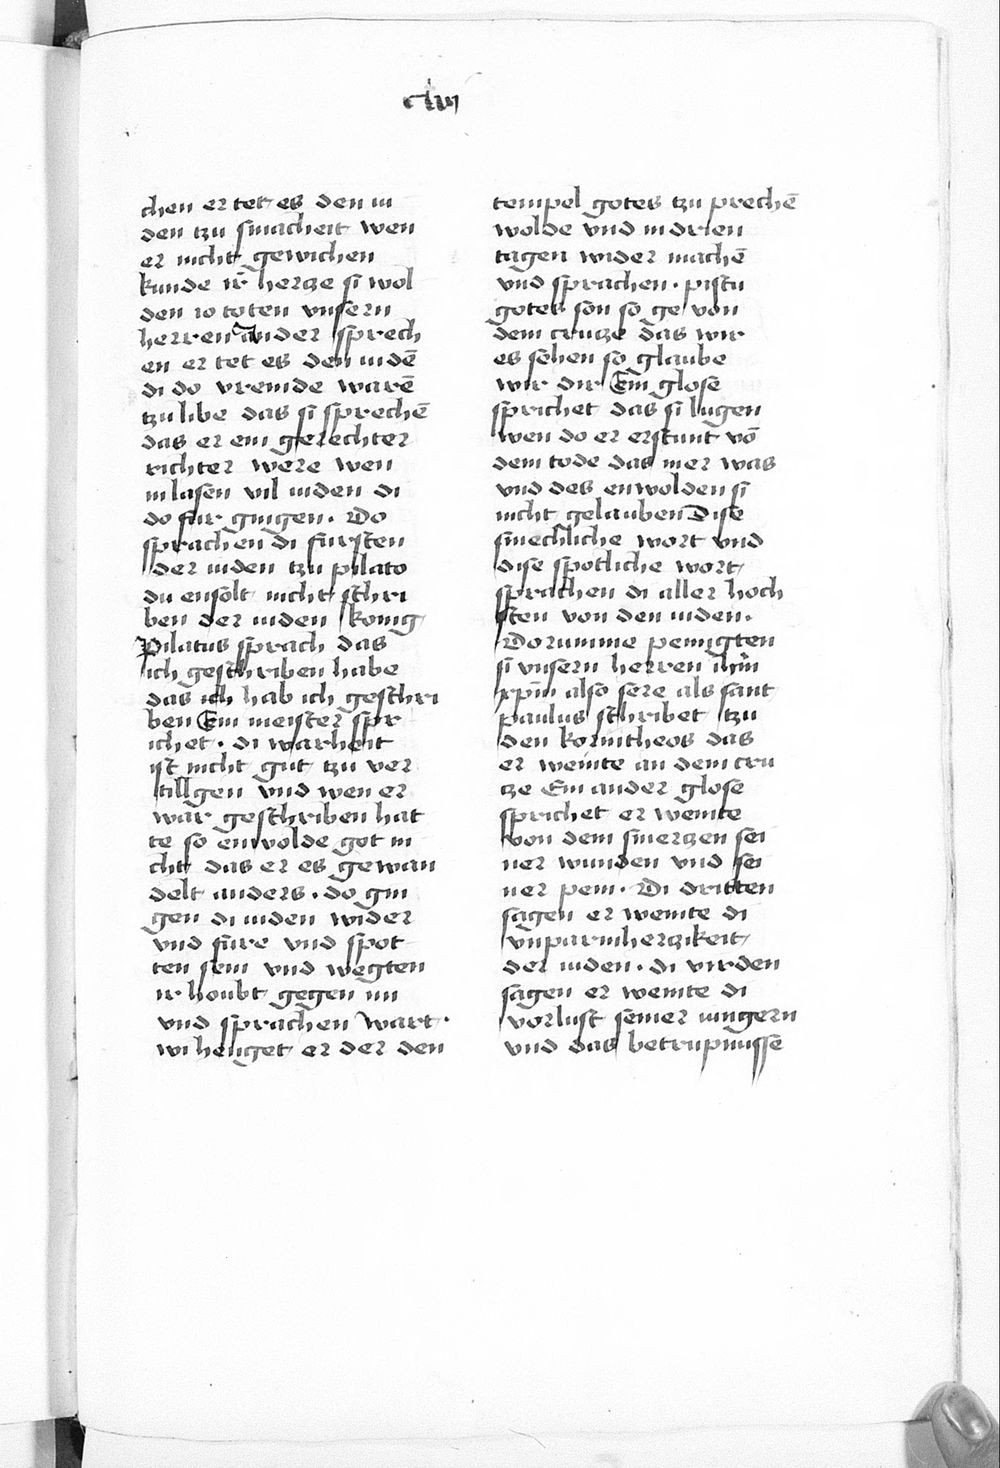 clvij
chen er tet es den iu
den tzu smacheit wen
er nicht gewichen
kunde ir hercze si wol
den io toten vnsern
herren ander sprech
en er tet es den iudē
di do vremde warē
tzu libe das si sprechē
das er ein gerechter
richter were wen
in lasen vil iuden di
do fur gingen. Do
sprachen di fursten
der iuden tzu pilato
du ensolt nicht schri
ben der iuden konig
Pilatus sprach das
ich geschriben habe
das ich hab ich geschri
ben Ein meister spr
ichet. di warheit
ist nicht gut tzu ver
tillgen vnd wen er
war geschriben hat
te so enwolde got ni
cht das er es gewan
delt anders. do gin
gen di iuden wider
vnd fure vnd spot
ten sein vnd wegten
ir houbt gegen im
vnd sprachen wart.
wi henget er der den
tempel gotes tzu prechē
wolde vnd in drien
tagen wider machē
vnd sprachen. pistu
gotes son so ge von
dem crucze das wir
es sehen so glaube
wir dir Ein glose
sprichet das si lugen
wen do er erstunt vō
dem tode das mer was
vnd des enwolden si
nicht gelauben Dise
smechliche wort vnd
dise spotliche wort
sprachen di aller hoch
sten von den iuden.
Dorumme peinigten
si vnsern herren ihm̄
xpm̄ also sere als sant
paulus schribet tzu
den korintheos das
er weinte an dem cru
cze Ein ander glose
sprichet er weinte
von dem smerczen sei
ner wunden vnd sei
ner pein. Di dritten
sagen er weinte di
vnparmherczikeit
der iuden. di virden
sagen er weinte di
vorlust seiner iungern
vnd das betrupnusse